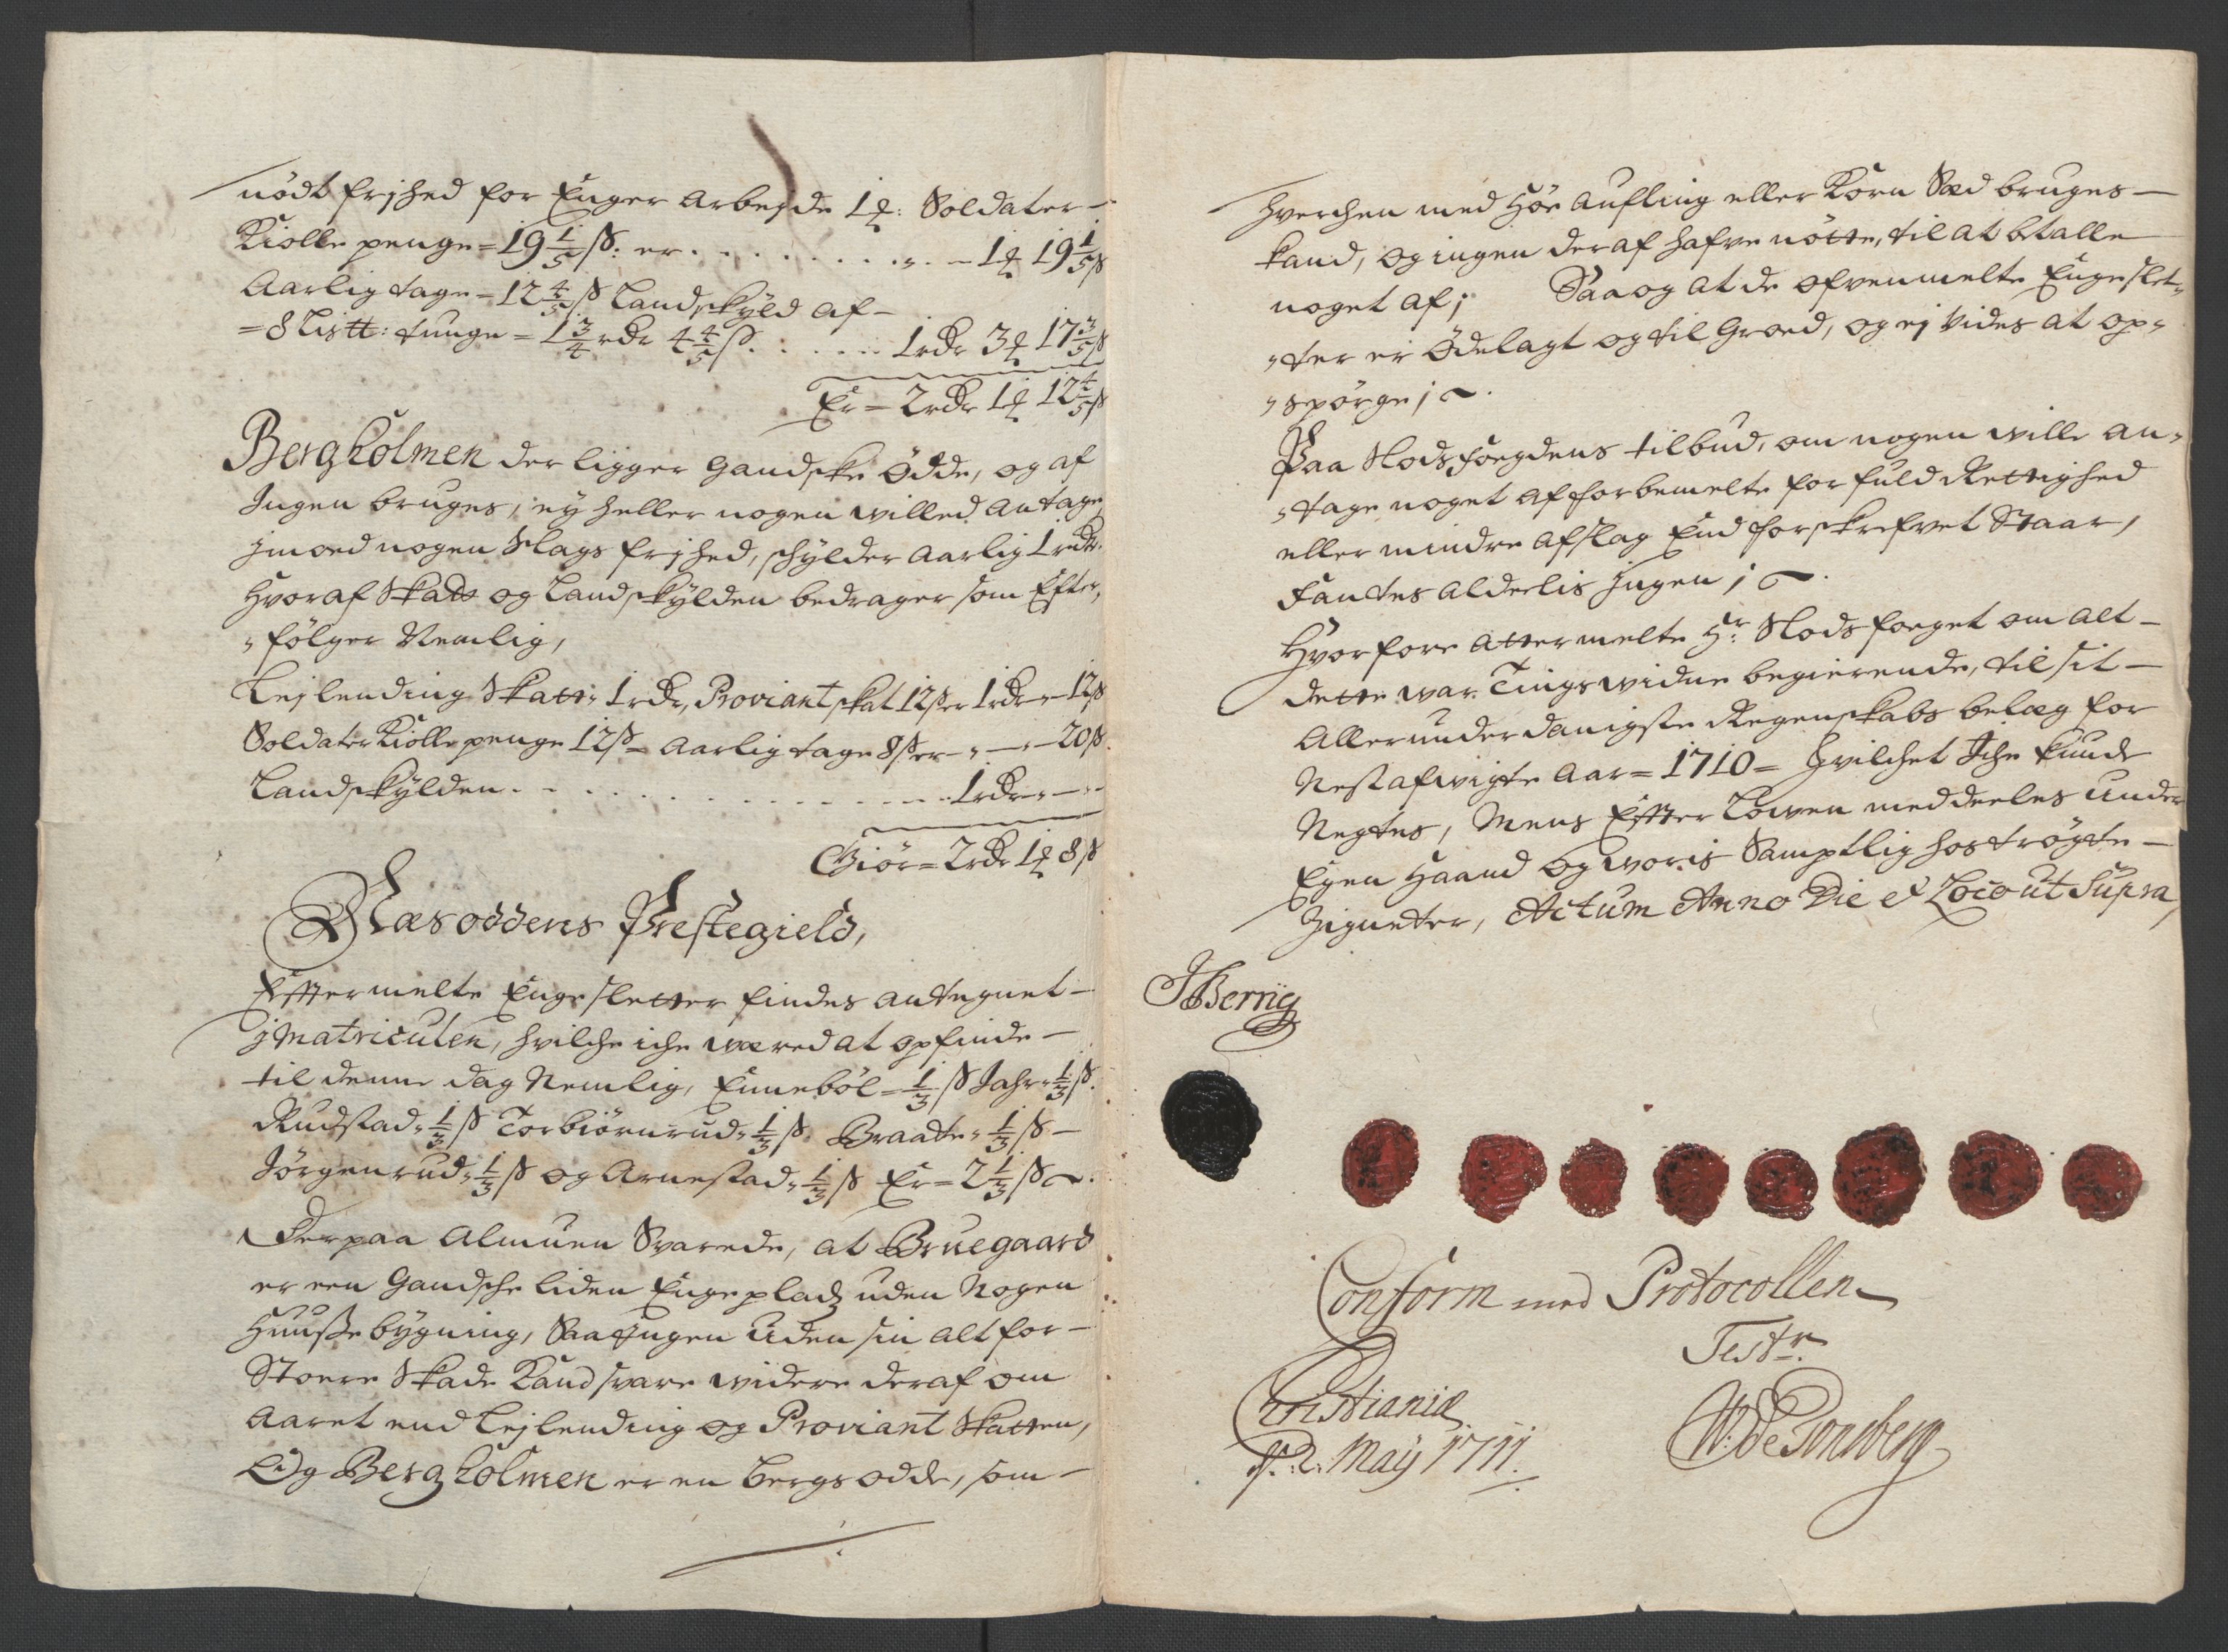 nödt frjhed for Enger Arbejde 1 ₰: Soldater-
Kiolle penge = 19 1/5 ß: er . . . . . . . . „ . - 1 ₰ 19 1/5 ß
Aarlig tage = 12 4/5 ß Landskyld af -
= 8 Listt: tunge = 1 3/4 rdr 4 4/5 ß . . . . . . 1 rdr 3 ₰ 17 3/5 ß
Er = 2 rdr 1 ₰ 12 4/5 ß
Bergholmen der ligger gandske Ödde, og af
Ingen bruges, ey heller nogen willed Antage,
jmoed nogen Slags frjhed, schylder Aarlig 1 rdr.
Hvoraf Skatt og Landskylden bedrager som Efter,
„følger Nemlig,
Lejlending Skatt: 1 rdr, Proviant skat 12 ß er 1 rdr - 12 ß
Soldater Kiolle penge 12 ß - Aarlig tage 8 ß er - „ - „ - 20 ß.
Landskylden . . . . . . . . . . . . . . 1 rdr - „ -
Giör = 2 rdr 1 ₰ 8 ß
Næsoddens Prestegield,
Efftermelte Enge sletter findes Antegnet -
j Matriculen, hvilche iche wæred at opfinde -
til denne dag Nemlig, Ennebôl = 1/3 ß Jahr = 1/3 ß.
Rudstad = 1/3 ß Torbiörnrud = 1/3 ß. Braate = 1/3 ß -
Jörgenrud = 1/3 ß og Arnestad = 1/3 ß Er = 2 1/3 ß.
Derpaa Almuen Svarede, at Bruegaard
er een Gandsche liden Engeplads uden Nogen
Huusse bygning, Saa Ingen uden sin alt for -
Stoere Skade Kand svare widere deraf om
Aaret end Lejlending og Proviant Skatten,
Og Bergholmen er en bergs odde, som -
hverchen med Höe Aufling eller Korn Sæd bruges -
kand, og ingen deraf hafve nötte, til at betalle
noget af; Saa og at de ofvenmelte Enge slet„
„ter er Ödelagt og til Groed, og ej vides at op„
„spörge;
Paa Slodsfoegdens tilbud, om nogen wille an„
„tage noget af forbemelte for fuld Rettighed
eller mindre afslag End forskrefvet Staar,
Fantes alderlis Jngen;
Hvorfore attermelte Hr. Slodsfoeget om alt -
dette war Tingswidne begierende, til sit -
Allerunderdanigste Regenskabs belæg for
Nestafwigte Aar = 1710 = hvilchet Iche kunde
Negtes, Mens Effter Lowen meddeeles under
Egen Haand og woris Samptlig hoströgte -
Zigneter, Actum Anno Die et Loco ut Supra,
Conform med Protocollen
Test
Christiania
d. 2. Maÿ 1711.